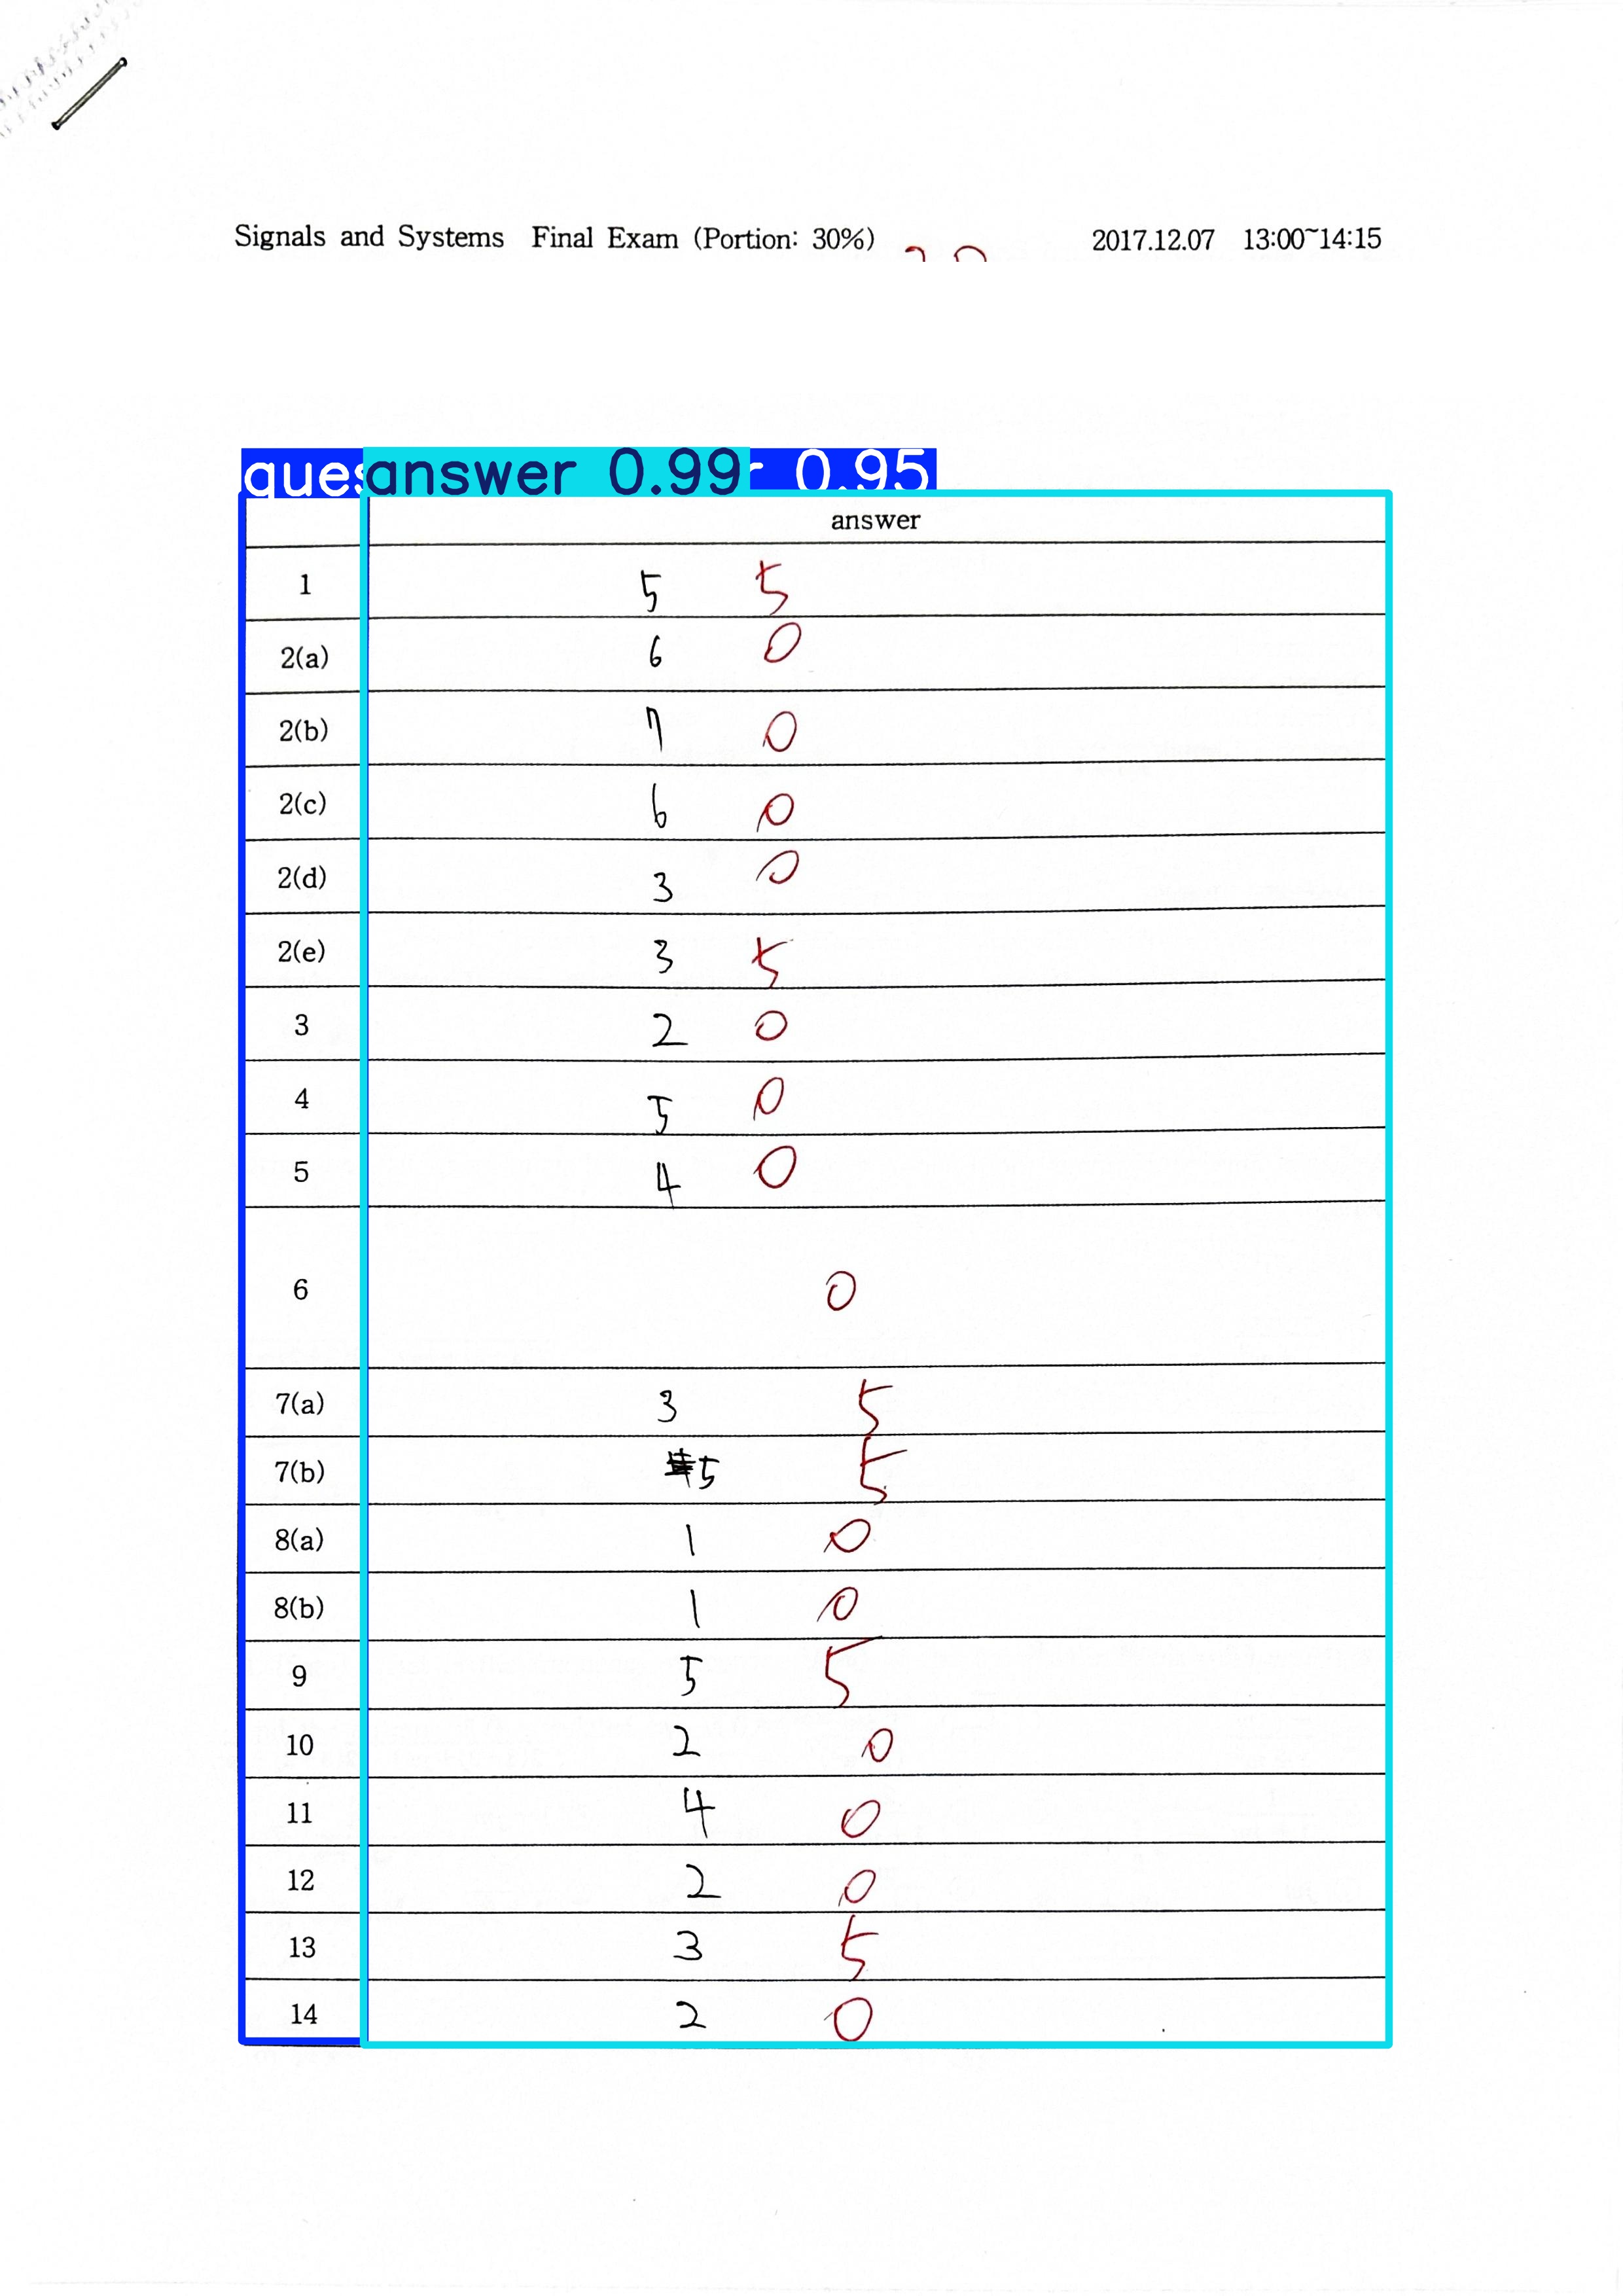 Signals and Systems Final Exam (Portion: 30%) 2017.12.07 13:00~14:15
answer 0.99 0.95
answer
1 5 5
2(a) 6 0
2(b) 7 0
2(c) 6 0
2(d) 3 0
2(e) 3 5
3 2 0
4 5 0
5 4 0
6 0
7(a) 3 5
7(b) 5 5
8(a) 1 0
8(b) 1 0
9 5 5
10 2 0
11 4 0
12 2 0
13 3 5
14 2 0